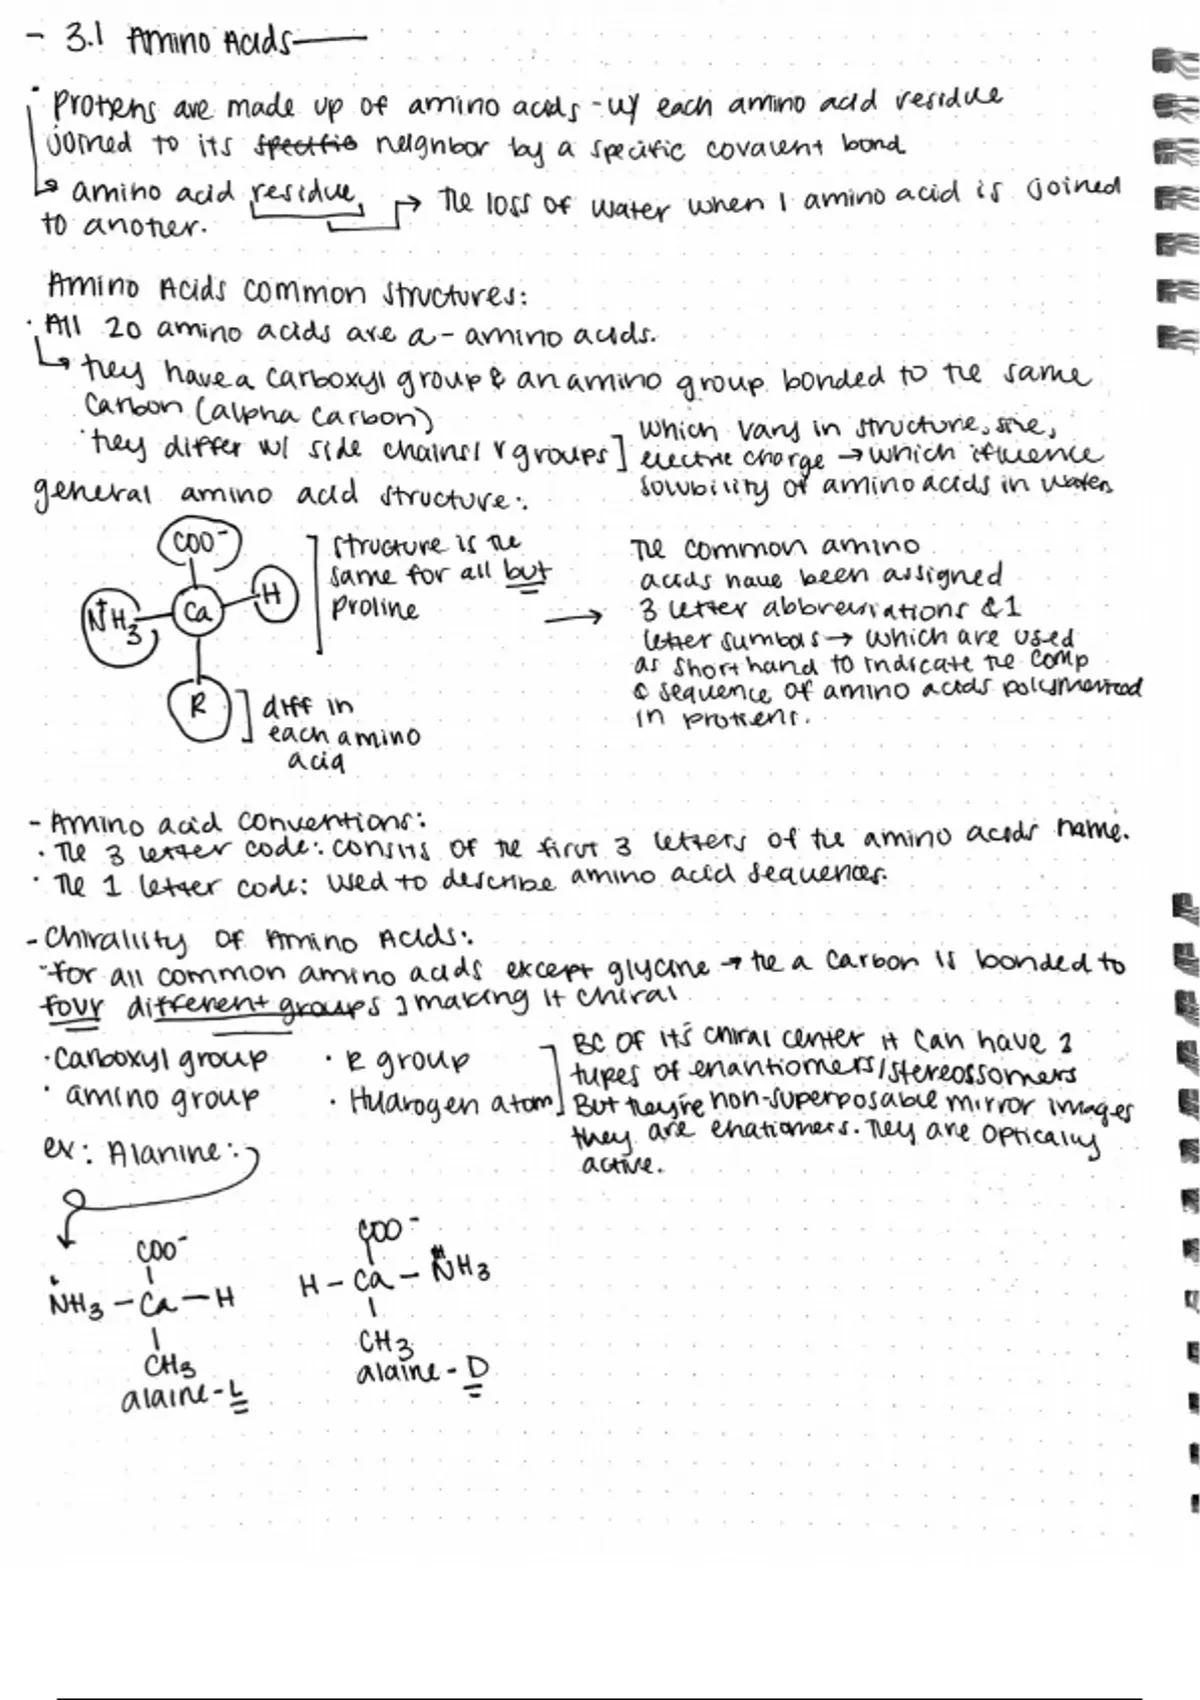 - 3.1 Amino Acids
· Protiens are made up of amino acids - w/ each amino acid residue
joined to its specific neighbor by a specific covalent bond
↳ amino acid residue, → The loss of water when 1 amino acid is joined
to another.
Amino Acids common structures:
· All 20 amino acids are a - amino acids.
↳ they have a carboxyl group & an amino group bonded to the same
Carbon (alpha carbon)
· they differ w/ side chains/ r groups] which vary in structure, size,
electric charge → which ifluence
solubility of amino acids in water
general amino acid structure:
COO⁻
N⁺H3 - Ca - H
R
structure is the
same for all but
proline
→
The common amino
acids have been assigned
3 letter abbreviations & 1
letter sumbols → which are used
as short hand to indicate the comp
& sequence of amino acids polymerized
in protiens.
] diff in
each amino
acid
- Amino acid conventions:
· The 3 letter code: consits of the first 3 letters of the amino acids name.
· The 1 letter code: Used to describe amino acid sequences.
- Chirality of Amino Acids:
· for all common amino acids except glycine → the a carbon is bonded to
four different groups ] making it chiral
· Carboxyl group · R group
· amino group · Hydrogen atom
] BC of its chiral center it can have 2
types of enantiomers/stereossomers
But they're non-superposable mirror images
they are enatiomers. They are optically
active.
ex: Alanine:
COO⁻
NH3 - Ca - H
CH3
alaine - L
COO⁻
H - Ca - NH3
CH3
alaine - D